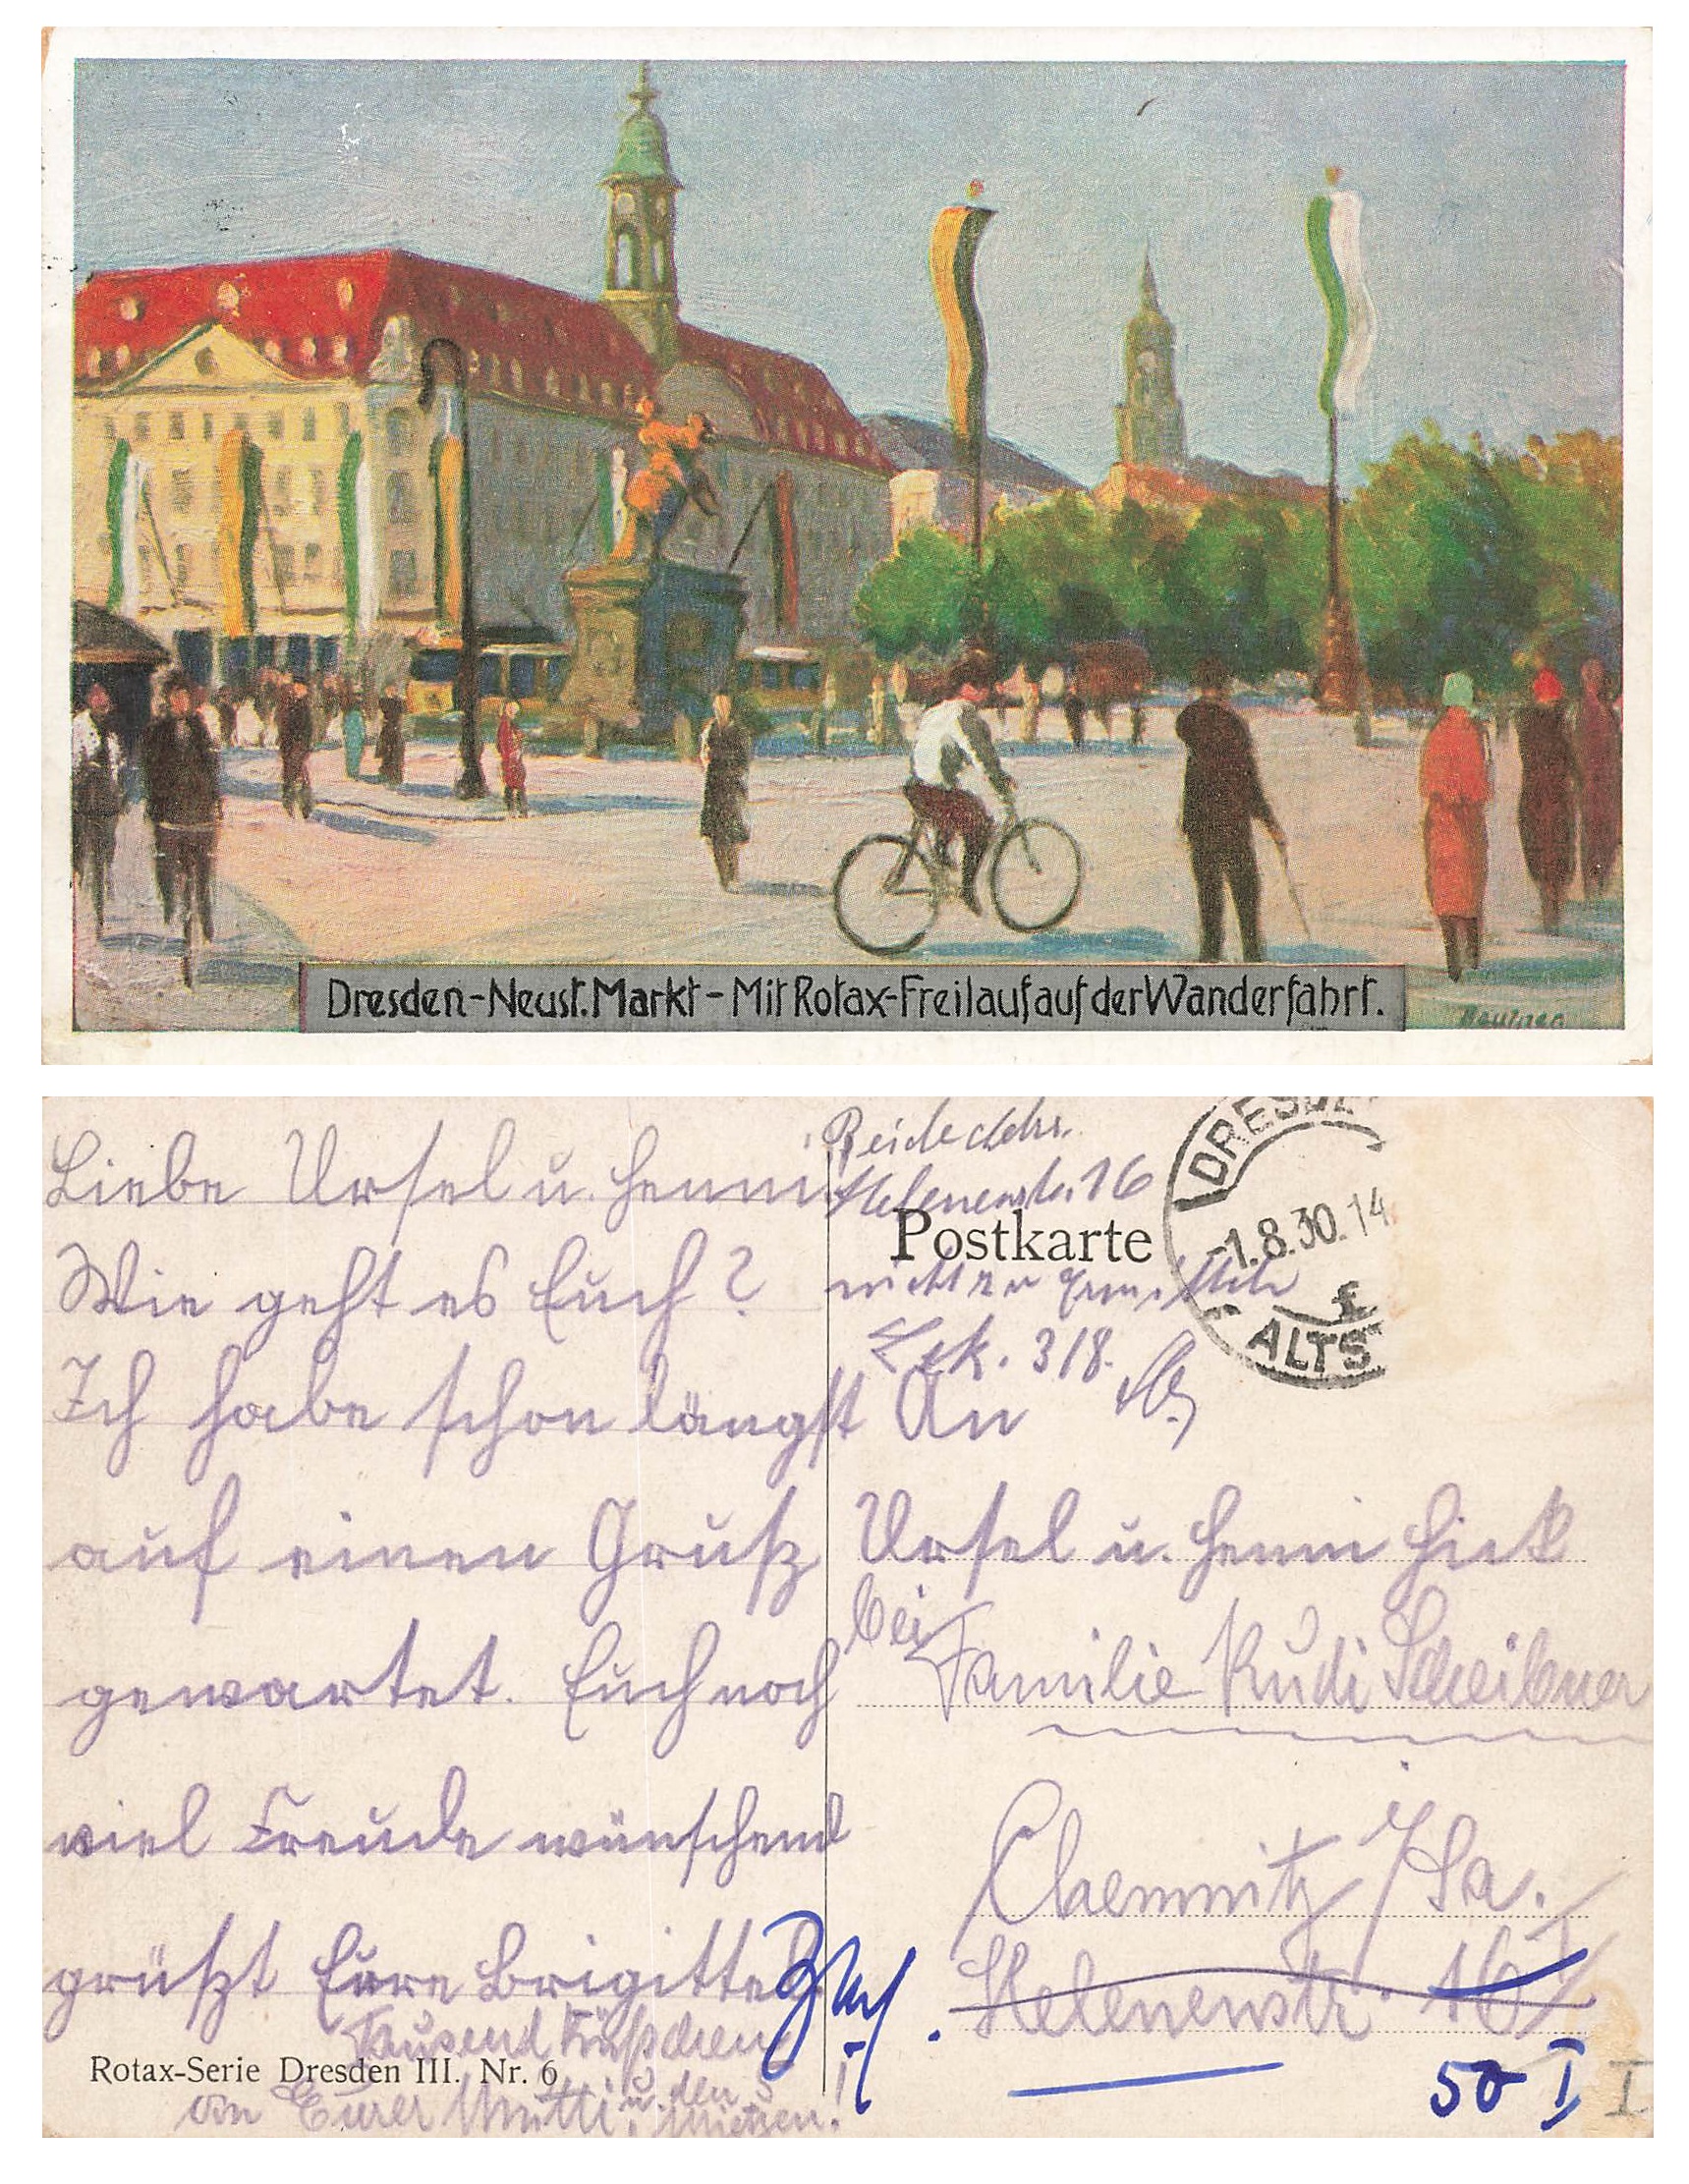 Dresden-Neust. Markt - Mit Rotax-Freilauf auf der Wanderfahrt.
Liebe Ursel u. Henni!
Wie geht es Euch?
Ich habe schon längst
auf einen Gruß
gewartet. Euch noch
viel Freude wünschend
grüßt Eure Brigitte
Tausend Küßchen
an Eurer Mutti u. den
Mietzen!
Rotax-Serie Dresden III. Nr. 6
Helenenstr. 16
Postkarte
nicht zu ermitteln
3/8.
DRESDEN
-1.8.30.14
ALTST
An
Ursel u. Henni Hick
bei Familie Rudi Scheibner
Chemnitz / Sa.
Helenenstr. 16 I
50 I
I